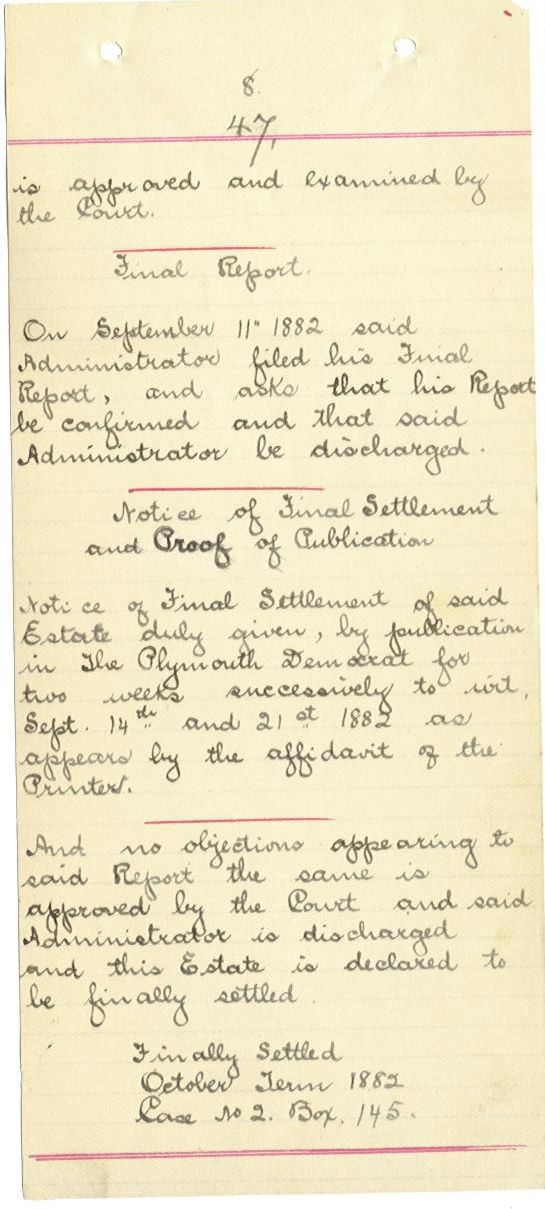 8.
47,
is approved and examined by
the Court.
Final Report.
On September 11" 1882 said
Administrator filed his Final
Report, and asks that his Report
be confirmed and that said
Administrator be discharged.
Notice of Final Settlement
and Proof of Publication
Notice of Final Settlement of said
Estate duly given, by publication
in The Plymouth Democrat for
two weeks successively to wit,
Sept. 14th and 21st 1882 as
appears by the affidavit of the
Printer.
And no objections appearing to
said Report the same is
approved by the Court and said
Administrator is discharged
and this Estate is declared to
be finally settled.
Finally Settled
October Term 1882
Case No 2. Box. 145.